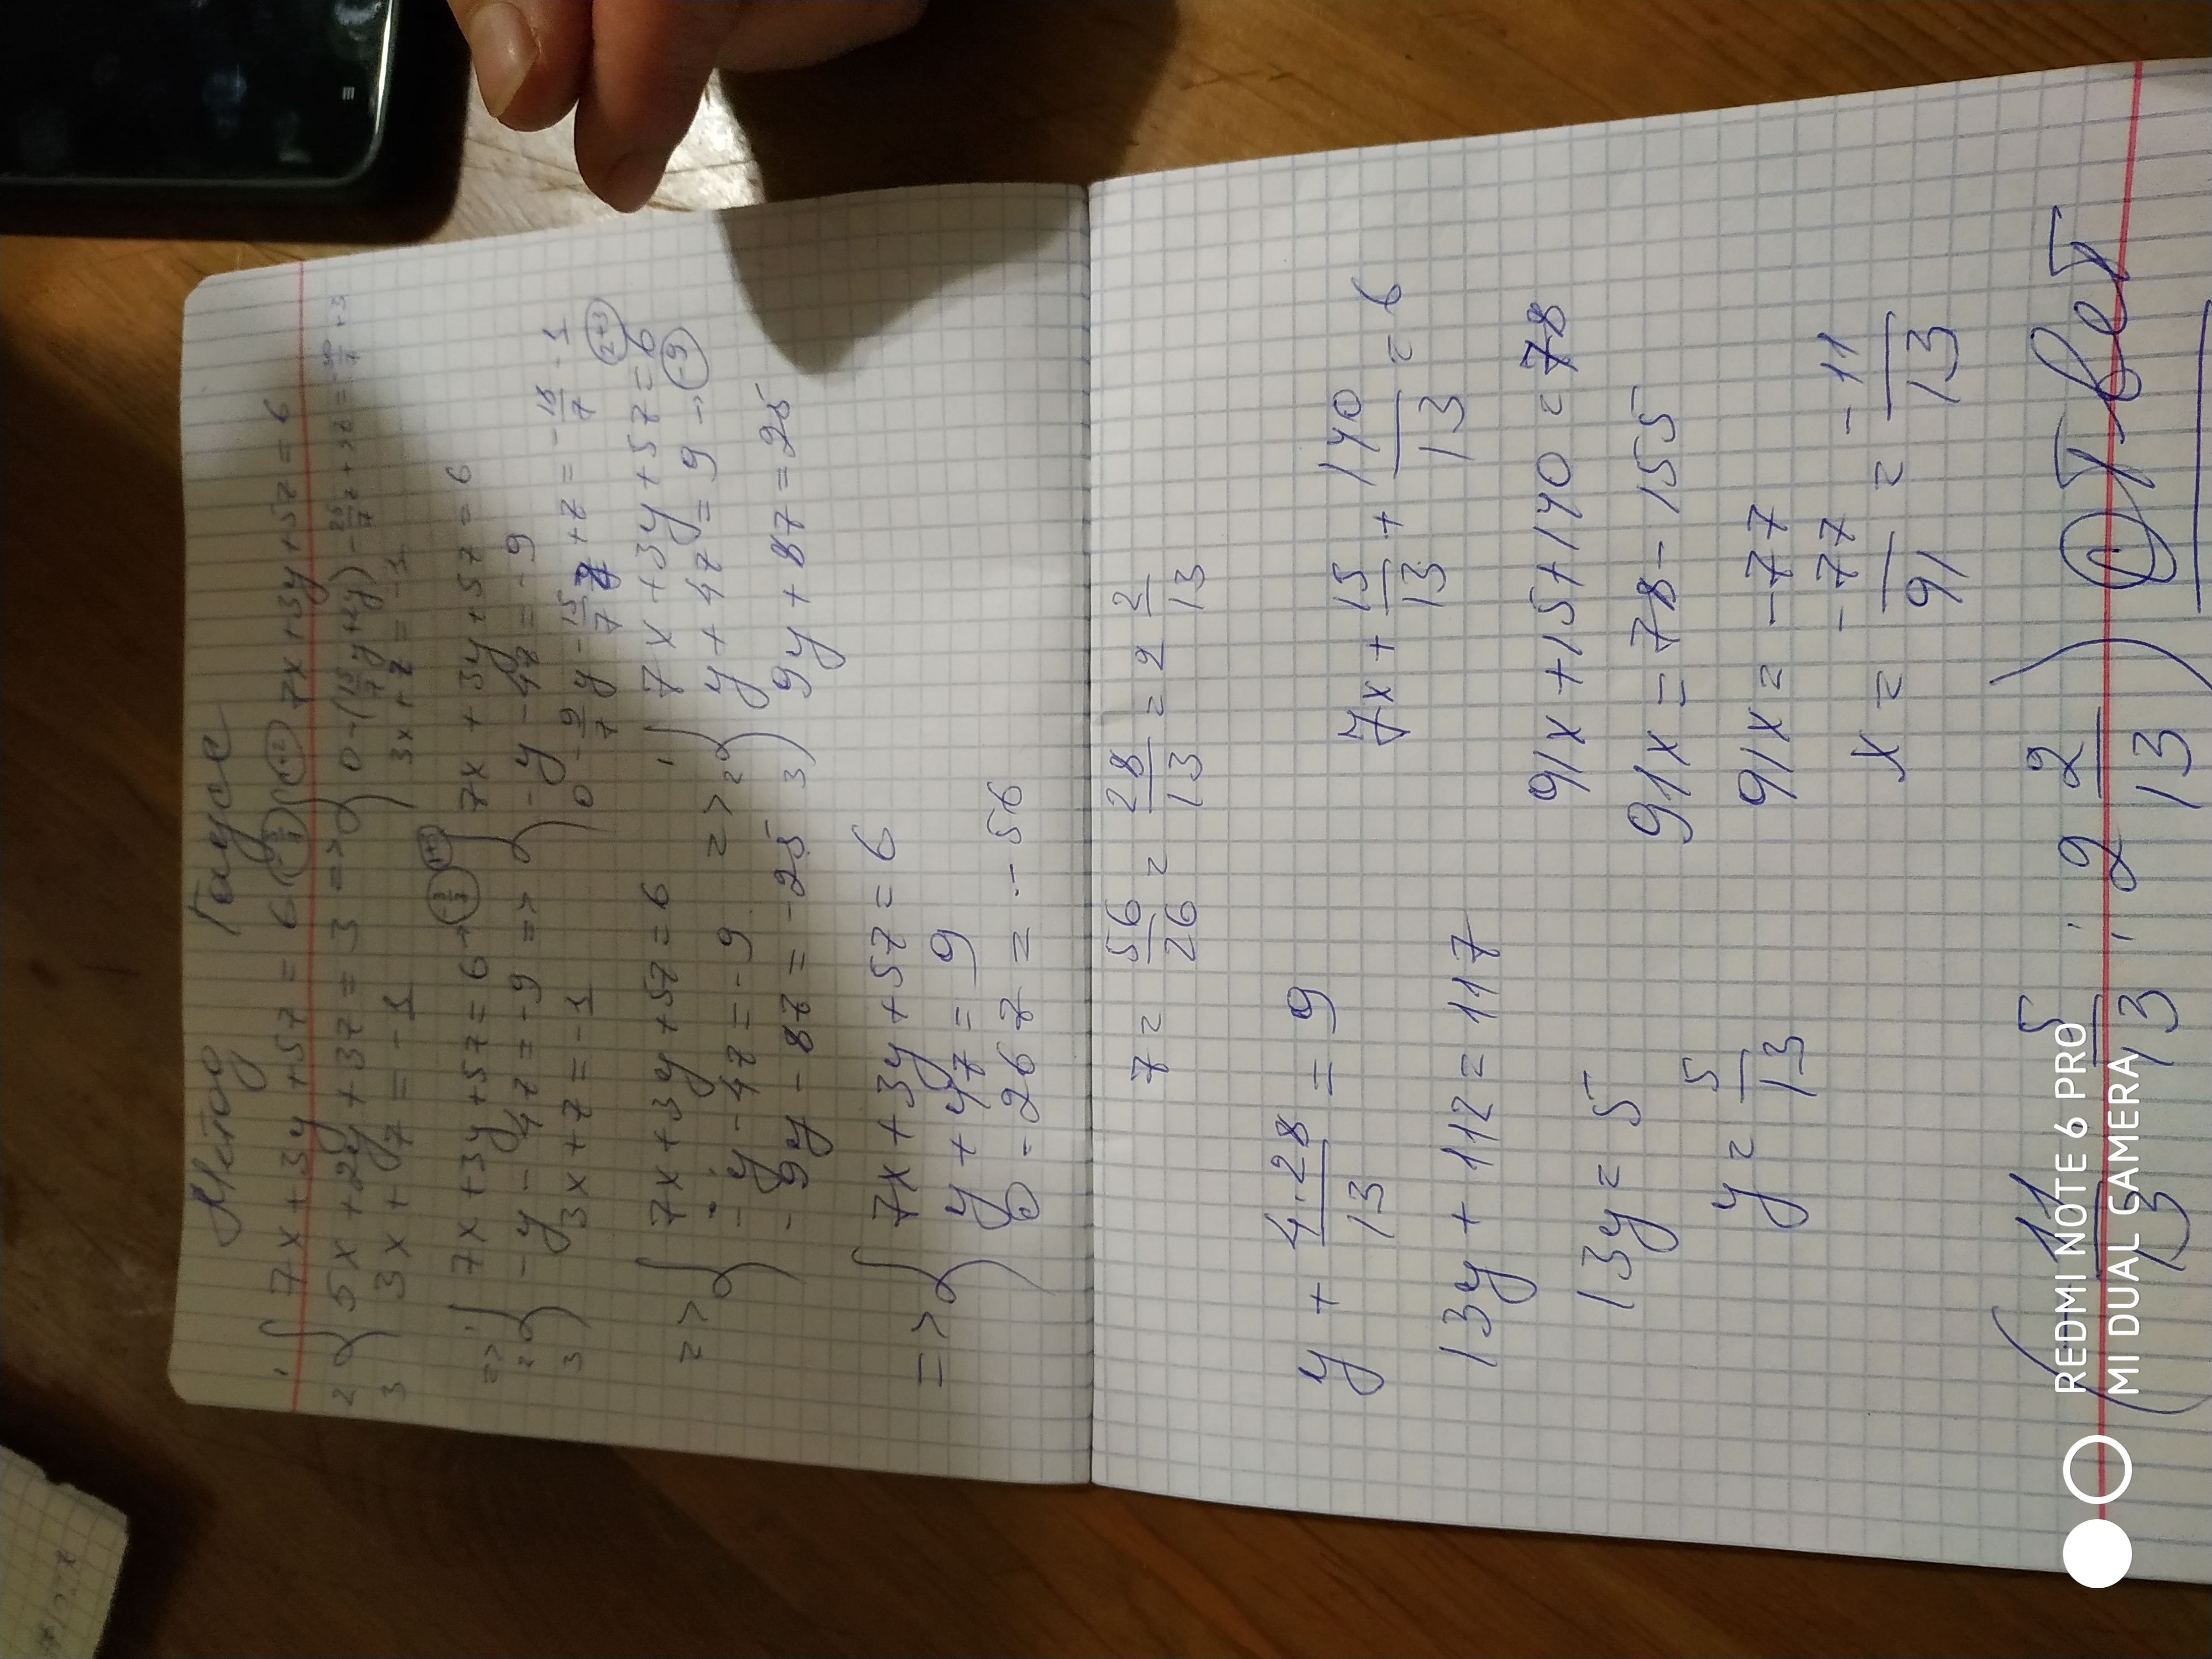 Метод Гаусс
1 { 7x + 3y + 5z = 6
2 5x + 2y + 3z = 3 =>
3 3x + z = -1
7x + 3y + 5z = 6
3x + z = -1
=> 1 { 7x + 3y + 5z = 6
2 -y - 4z = -9 =>
3 3x + z = -1
{ 7x + 3y + 5z = 6
-y - 4z = -9
0 - 9/7 y - 15/7 z + z = - 18/7 - 1
=> { 7x + 3y + 5z = 6
-y - 4z = -9 =>
-9y - 8z = -25
1 { 7x + 3y + 5z = 6
2 y + 4z = 9
3 9y + 8z = 25
=> { 7x + 3y + 5z = 6
y + 4z = 9
0 - 26z = -56
z = 56/26 = 28/13 = 2 2/13
y + 4·28/13 = 9
13y + 112 = 117
13y = 5
y = 5/13
7x + 15/13 + 140/13 = 6
91x + 15 + 140 = 78
91x = 78 - 155
91x = -77
x = -77/91 = -11/13
5/13 ; 2 2/13 ) Ответ
REDMI NOTE 6 PRO
MI DUAL CAMERA